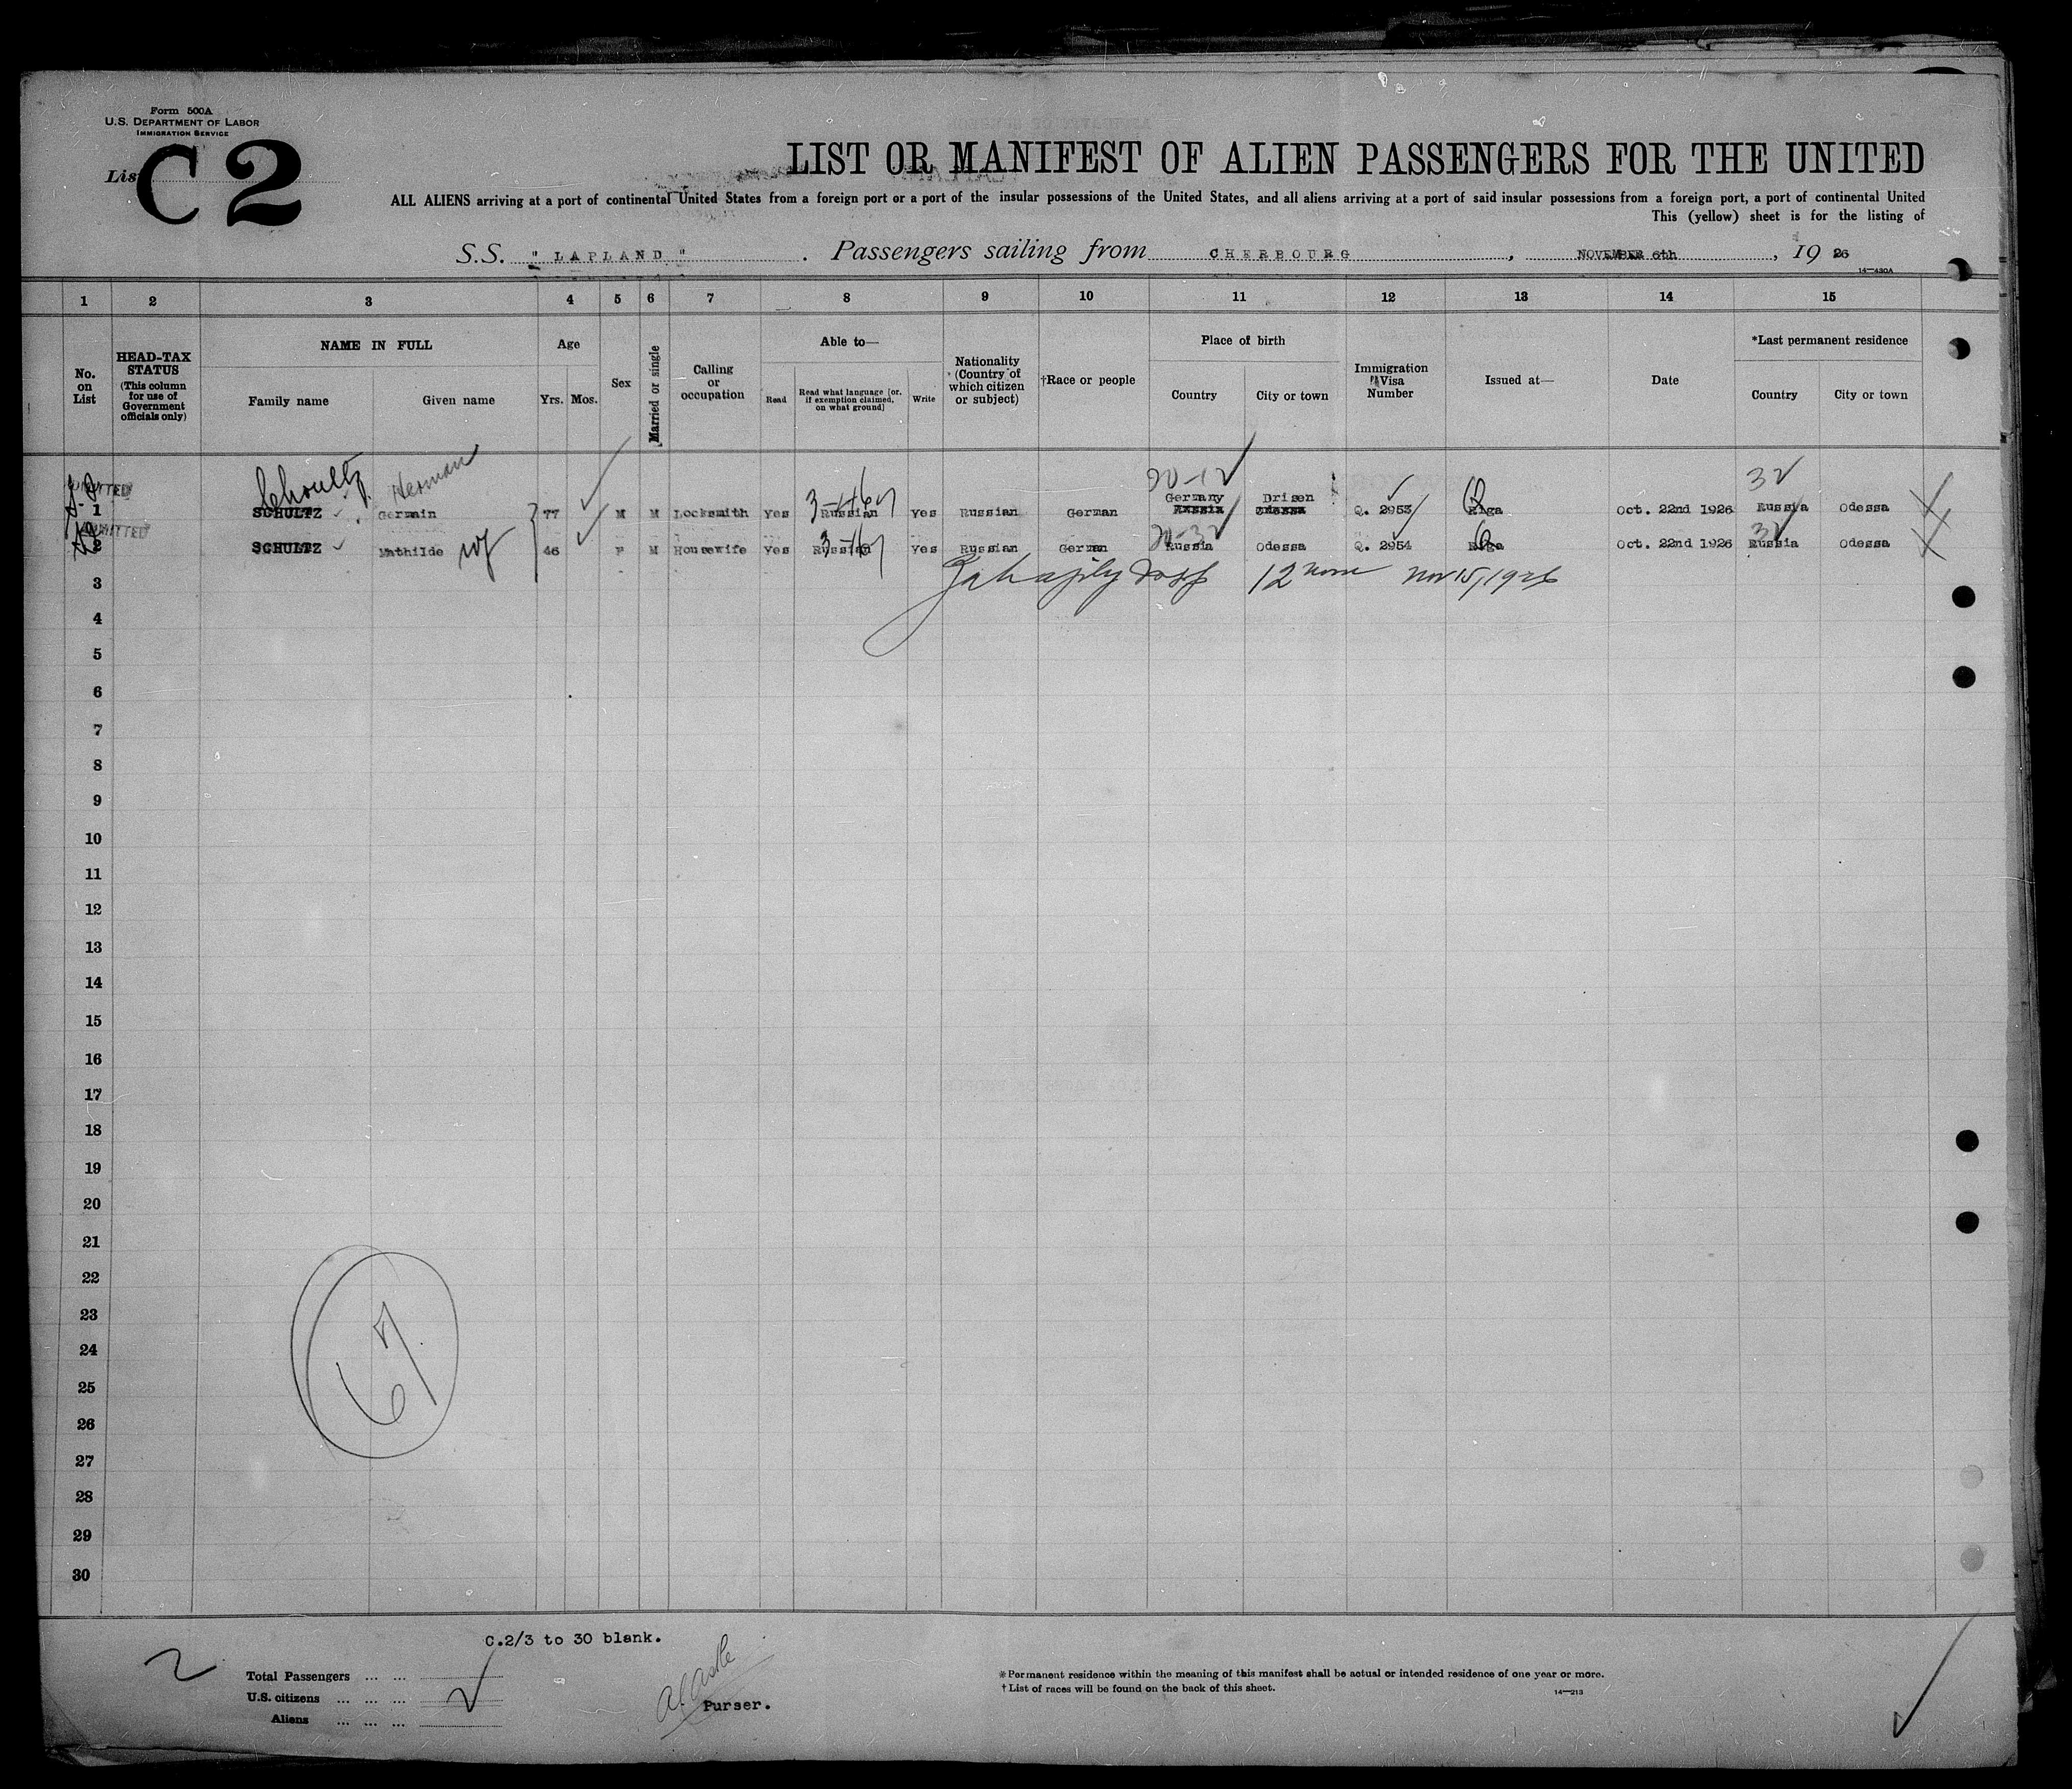 Form 500A
U.S. DEPARTMENT OF LABOR
IMMIGRATION SERVICE
List C2
LIST OR MANIFEST OF ALIEN PASSENGERS FOR THE UNITED
ALL ALIENS arriving at a port of continental United States from a foreign port or a port of the insular possessions of the United States, and all aliens arriving at a port of said insular possessions from a foreign port, a port of continental United
This (yellow) sheet is for the listing of
S.S. "LAPLAND". Passengers sailing from CHERBOURG, NOVEMBER 6th, 19 26
14—430A
1 2 3 4 5 6 7 8 9 10 11 12 13 14 15
No. on List
HEAD-TAX STATUS (This column for use of Government officials only)
NAME IN FULL
Family name
Given name
Age
Yrs. Mos.
Sex
Married or single
Calling or occupation
Able to—
Read
Read what language [or, if exemption claimed, on what ground]
Write
Nationality (Country of which citizen or subject)
†Race or people
Place of birth
Country
City or town
Immigration Visa Number
Issued at—
Date
*Last permanent residence
Country
City or town
Schoultz Herman 20-12 32
ADMITTED Germany Drisen
1 SCHULTZ Germain 77 M M Locksmith Yes Russian Yes Russian German Russia Odessa Q. 2953 Riga Oct. 22nd 1926 Russia Odessa
ADMITTED 20-32 32
2 SCHULTZ Mathilde wf 46 F M Housewife Yes Russian Yes Russian German Russia Odessa Q. 2954 Riga Oct. 22nd 1926 Russia Odessa
3 12 noon Nov 15, 1926
4
5
6
7
8
9
10
11
12
13
14
15
16
17
18
19
20
21
22
23
24
25
26
27
28
29
30
67
C.2/3 to 30 blank.
2
Total Passengers ... ...
U.S. citizens ... ... ...
Aliens ... ... ...
Purser.
* Permanent residence within the meaning of this manifest shall be actual or intended residence of one year or more.
† List of races will be found on the back of this sheet.
14—213